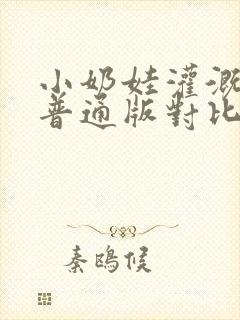 小奶娃灌溉
普通版對比
秦鴎候